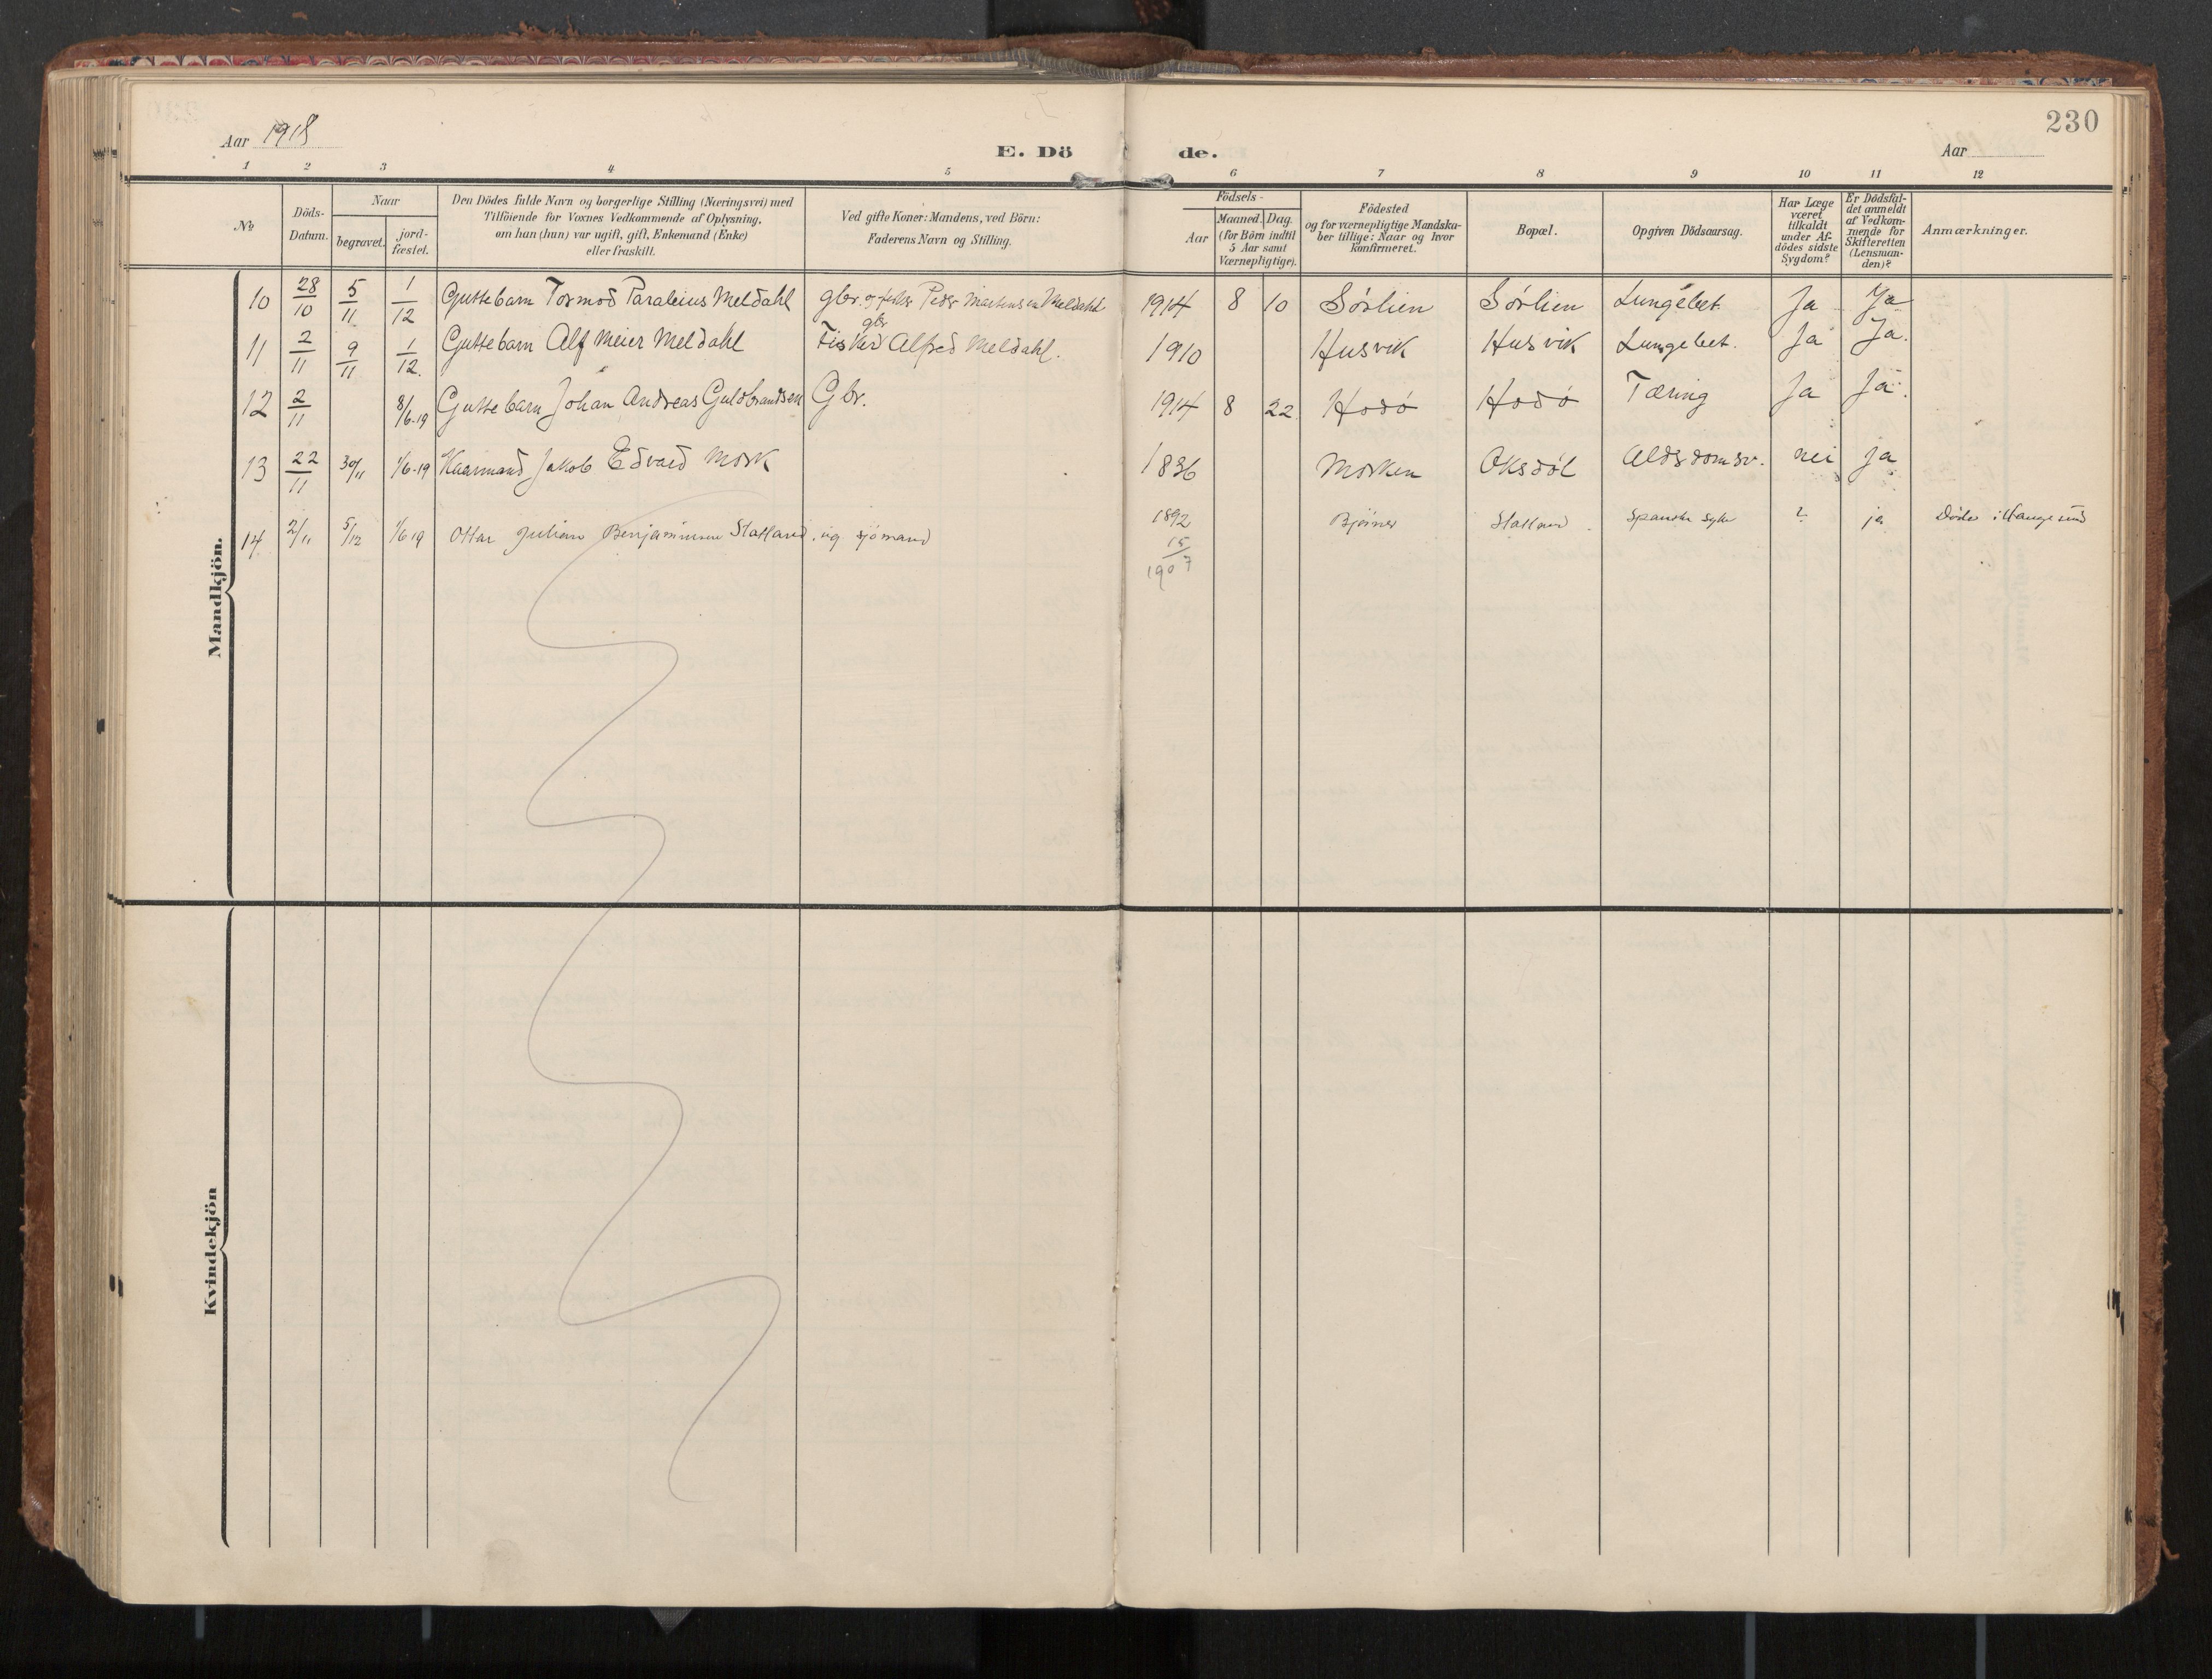 230
Aar 1918
E. Dö de.
Aar
1 2 3 4 5 6 7 8 9 10 11 12
№
Döds-Datum.
Naar
begravet.
jord-fæstet.
Den Dödes fulde Navn og borgerlige Stilling (Næringsvei) med
Tilföiende for Voxnes Vedkommende af Oplysning,
om han (hun) var ugift, gift, Enkemand (Enke)
eller fraskilt.
Ved gifte Koner: Mandens, ved Börn:
Faderens Navn og Stilling.
Födsels-
Aar
Maaned. Dag.
(for Börn indtil
5 Aar samt
Værnepligtige).
Födested
og for værnepligtige Mandska-
ber tillige: Naar og hvor
konfirmeret.
Bopæl.
Opgiven Dödsaarsag.
Har Læge
været
tilkaldt
under Af-
dödes sidste
Sygdom?
Er Dödsfal-
det anmeldt
af Vedkom-
mende for
Skifteretten
(Lensman-
den)?
Anmærkninger.
Mandkjön.
10 28/10 5/11 1/12 Guttebarn Tormod Meldahl gbr. og Peder Martinsen Meldahl 1914 8 10 Sørlien Sørlien Lungebet. Ja Ja
gbr
11 2/11 9/11 1/12. Guttebarn Alf Meier Meldahl Fisker Alfred Meldahl. 1910 Husvik Husvik Lungebet. Ja Ja.
12 2/11 8/6-19 Guttebarn Johan Andreas Guldbrandsen Gbr. 1914 8 22 Hodø Hodø Tæring Ja Ja.
13 22/11 30/11 1/6-19 Kaarmand Jakob Edvard Mork 1836 Morken Oksdøl Aldsdomsv. nei ja
14 2/11 5/12 1/6 19 Ottar Julian Benjaminsen Statland, ug sjömand 1892 Bjöines Statland. Spanske syke ? ja Döde i Haugesund
15/1907
Kvindekjön